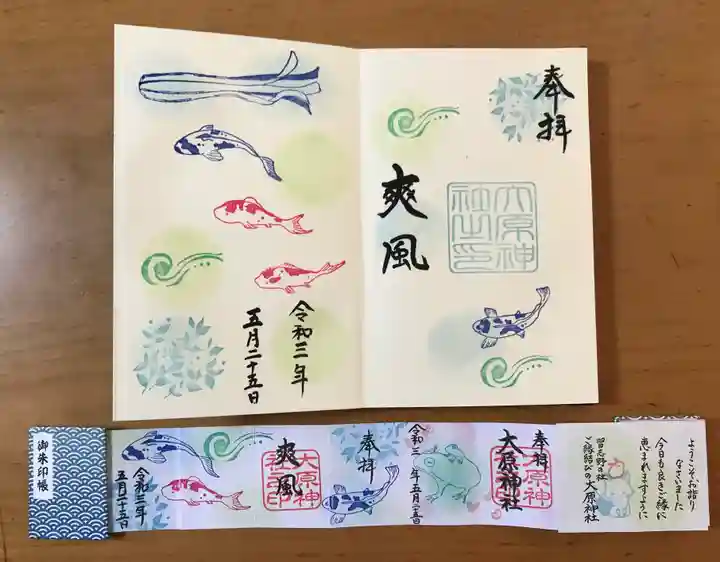 奉拝
爽風
大原神
社之印
令和三年
五月二十五日
ようこそ、お詣り
なさいました
今日も良きご縁に
恵まれますように
習志野の社
ご縁結びの大原神社
奉拝
大原神社
大原神
社之印
令和三年五月二五日
奉拝
爽風
大原神
社之印
令和三年
五月二十五日
御朱印帳